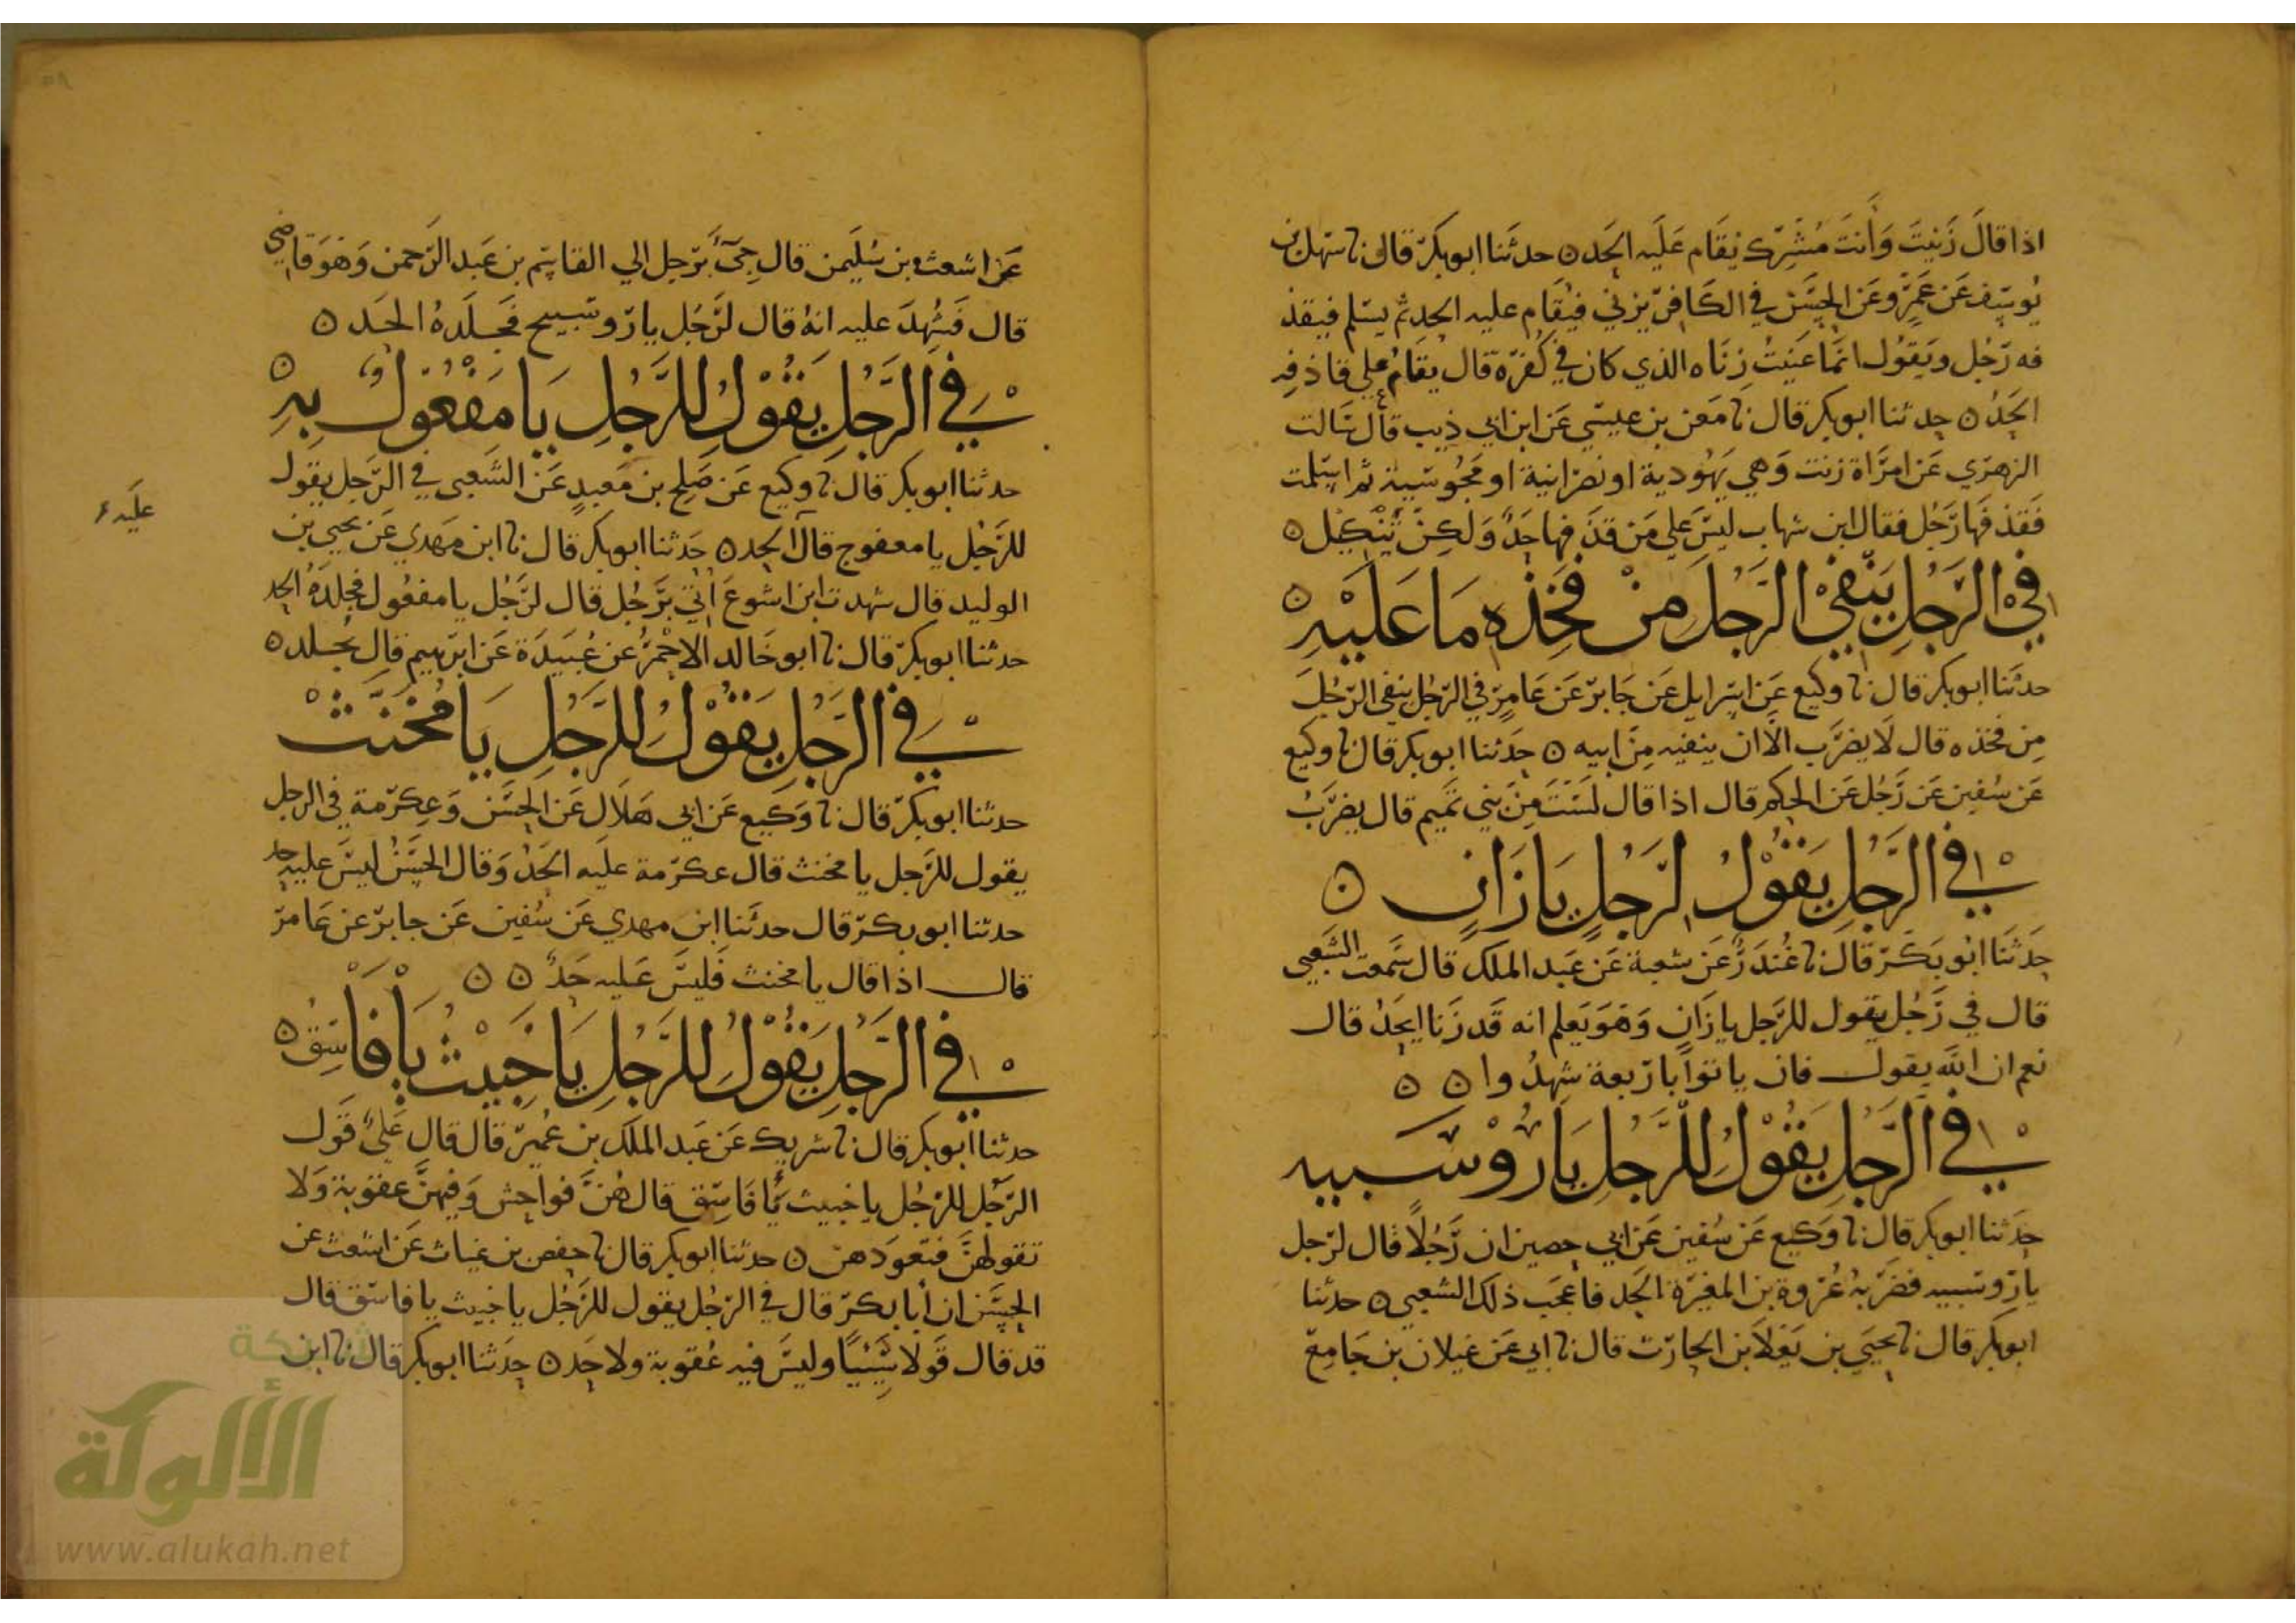 اذا قالَ زَنَيتَ وَأنتَ مُشْرِك يُقَام عَلَيه الحَد ه حدثَنا ابو بكر قال نا سَهل بن
يُوسِف عَن عَمرٍو عَن الحِسَن في الكَافر يزني فيُقَام عليه الحد ثم يسلم فيقذ
فه رَجُل ويَقوُل انمَّا عَنَيتُ زِنَاه الذي كان في كُفرَه قال يقَامُ علي قاذفِه
الحَدُ ه حدثنا ابو بكر قال نا مَعن بن عيسَي عَن ابن ابي ذيب قال سَالت
الزهرَي عَن امرَاة زنت وَهي يَهُودية او نصرَانية او مَجُوسَية ثم اسلمت
فَقذفَها رَجُل فقال ابن شهاب ليسَ علي مَن قذفها حَدٌ وَلكِنْ تَنْكِيل ه
في الرَّجِلِ يَنْفي الرَّجلَ مِنْ فَخِذِه مَا عَلَيْهِ ه
حدثَنا ابو بكر قال نا وكيع عَن اسرايل عَن جَابر عَن عَامِر في الرَجُل ينفي الرَجُلَ
مِن فخذه قال لَا يضرَب الَّا ان ينفيه مِن ابيه ه حَدثنا ابو بكر قال نا وكيع
عَن سُفين عَن رَجُل عَن الحكم قال اذا قال لَسْتَ مِنْ بَني تَميم قال يضرَبُ
في الرَّجُلِ يَقُوْلُ لِرَجلٍ يَا زَانٍ ه
حَدثنَا ابُو بَكر قال نا غُندَرٌ عَن شعبة عَن عَبد الملك قال سَمعت الشَعبي
قال في رَجُل يقول للرَّجل يا زَانٍ وَهوَ يَعلم انه قَد زَنا ايحَدُ قال
نعم ان الله يقول فان ياتوا باربعة شهدُوا ه ه
في الرَّجلِ يقُوْلُ للرَّجلِ يَا رُوْسَبيه
حدَثنا ابو بكر قال نا وَكيع عَن سُفين عَن ابي حصين ان رَجُلًا قال لرَجل
يا رَوسَبيه فضرَبهُ عُروة بن المغيرَة الحَد فاعجَب ذلك الشعبي ه حدثنا
ابو بكر قال نا يحيَي بن يَعْلَا بن الحارَث قال نا ابي عَن غيلان بن جَامِع
عَن اشعث بن سُلَيمن قال جِيَ بَرَجل الي القاسِم بن عَبد الرَحمن وَهوَ قاضِي
قال فَشُهِدَ عليه انهُ قال لرَّجُل يا رَوسَبيح فَجَلَدهُ الحَد ه
في الرَّجُلِ يَقُوْلُ للرَّجُلِ يَا مَفْعُوْلُ بِهِ ه
حدثنا ابو بكر قال نا وكيع عَن صَلِح بن مَعبدٍ عَن الشَعبي في الرَجل يقول
للرَّجُل يا معفوج قال الحد ه حَدثنا ابو بكر قال نا ابن مَهدي عَن يحيي بن
عَلَيه
الوليد قال شهدت ابن اشوع اُتِيَ برَجُل قال لرَجُل يا مفعُول فجلدَهُ الحد
حدثنا ابو بكر قال نا ابو خَالد الاحْمَرُ عَن عُبَيدَة عَن ابرَهيم قال يجلد ه
في الرَّجُلِ يَقُوْلُ للرَّجُلِ يَا مُخنَّثْ
حدثنا ابو بكر قال نا وَكيع عَن ابي هَلاَل عَن الحِسَن وَعِكرَمة في الرجل
يقول للرَّجل يا مخنث قال عكرَمة علَيه الحَدُ وَقال الحِسَنُ ليسَ عليه حد
حدثنا ابو بكر قال حدثَنا ابن مهدي عَن سُفين عَن جابر عَن عَامر
قال اذا قال يا مخنث فَليسَ عَليه حَدٌ ه ه
في الرَّجُلِ يَقُوْلُ للرَّجُلِ يَا خَبِيْثُ يَا فَاسِقُ ه
حدثنا ابو بكر قال نا شريك عَن عَبد الملك بن عُمير قال قال عَليٌ قَول
الرَّجُل للرَّجُل يا خبيث يَا فَاسِق قال هُنَّ فواحِش وَفيهنَّ عقوبة وَلا
تقولهُنَّ فتعودهن ه حدثنا ابو بكر قال نا حفص بن غياث عَن اشعث عَن
الحِسَن ان أبا بكر قال في الرَجُل يقول للرَّجُل يا خبيث يا فاسق قال
قد قال قَولا سَيِّئًا وليسَ فيه عُقوبة ولا حَد ه حَدثنا ابو بكر قال نا ابن
شبكة
الألوكة
www.alukah.net